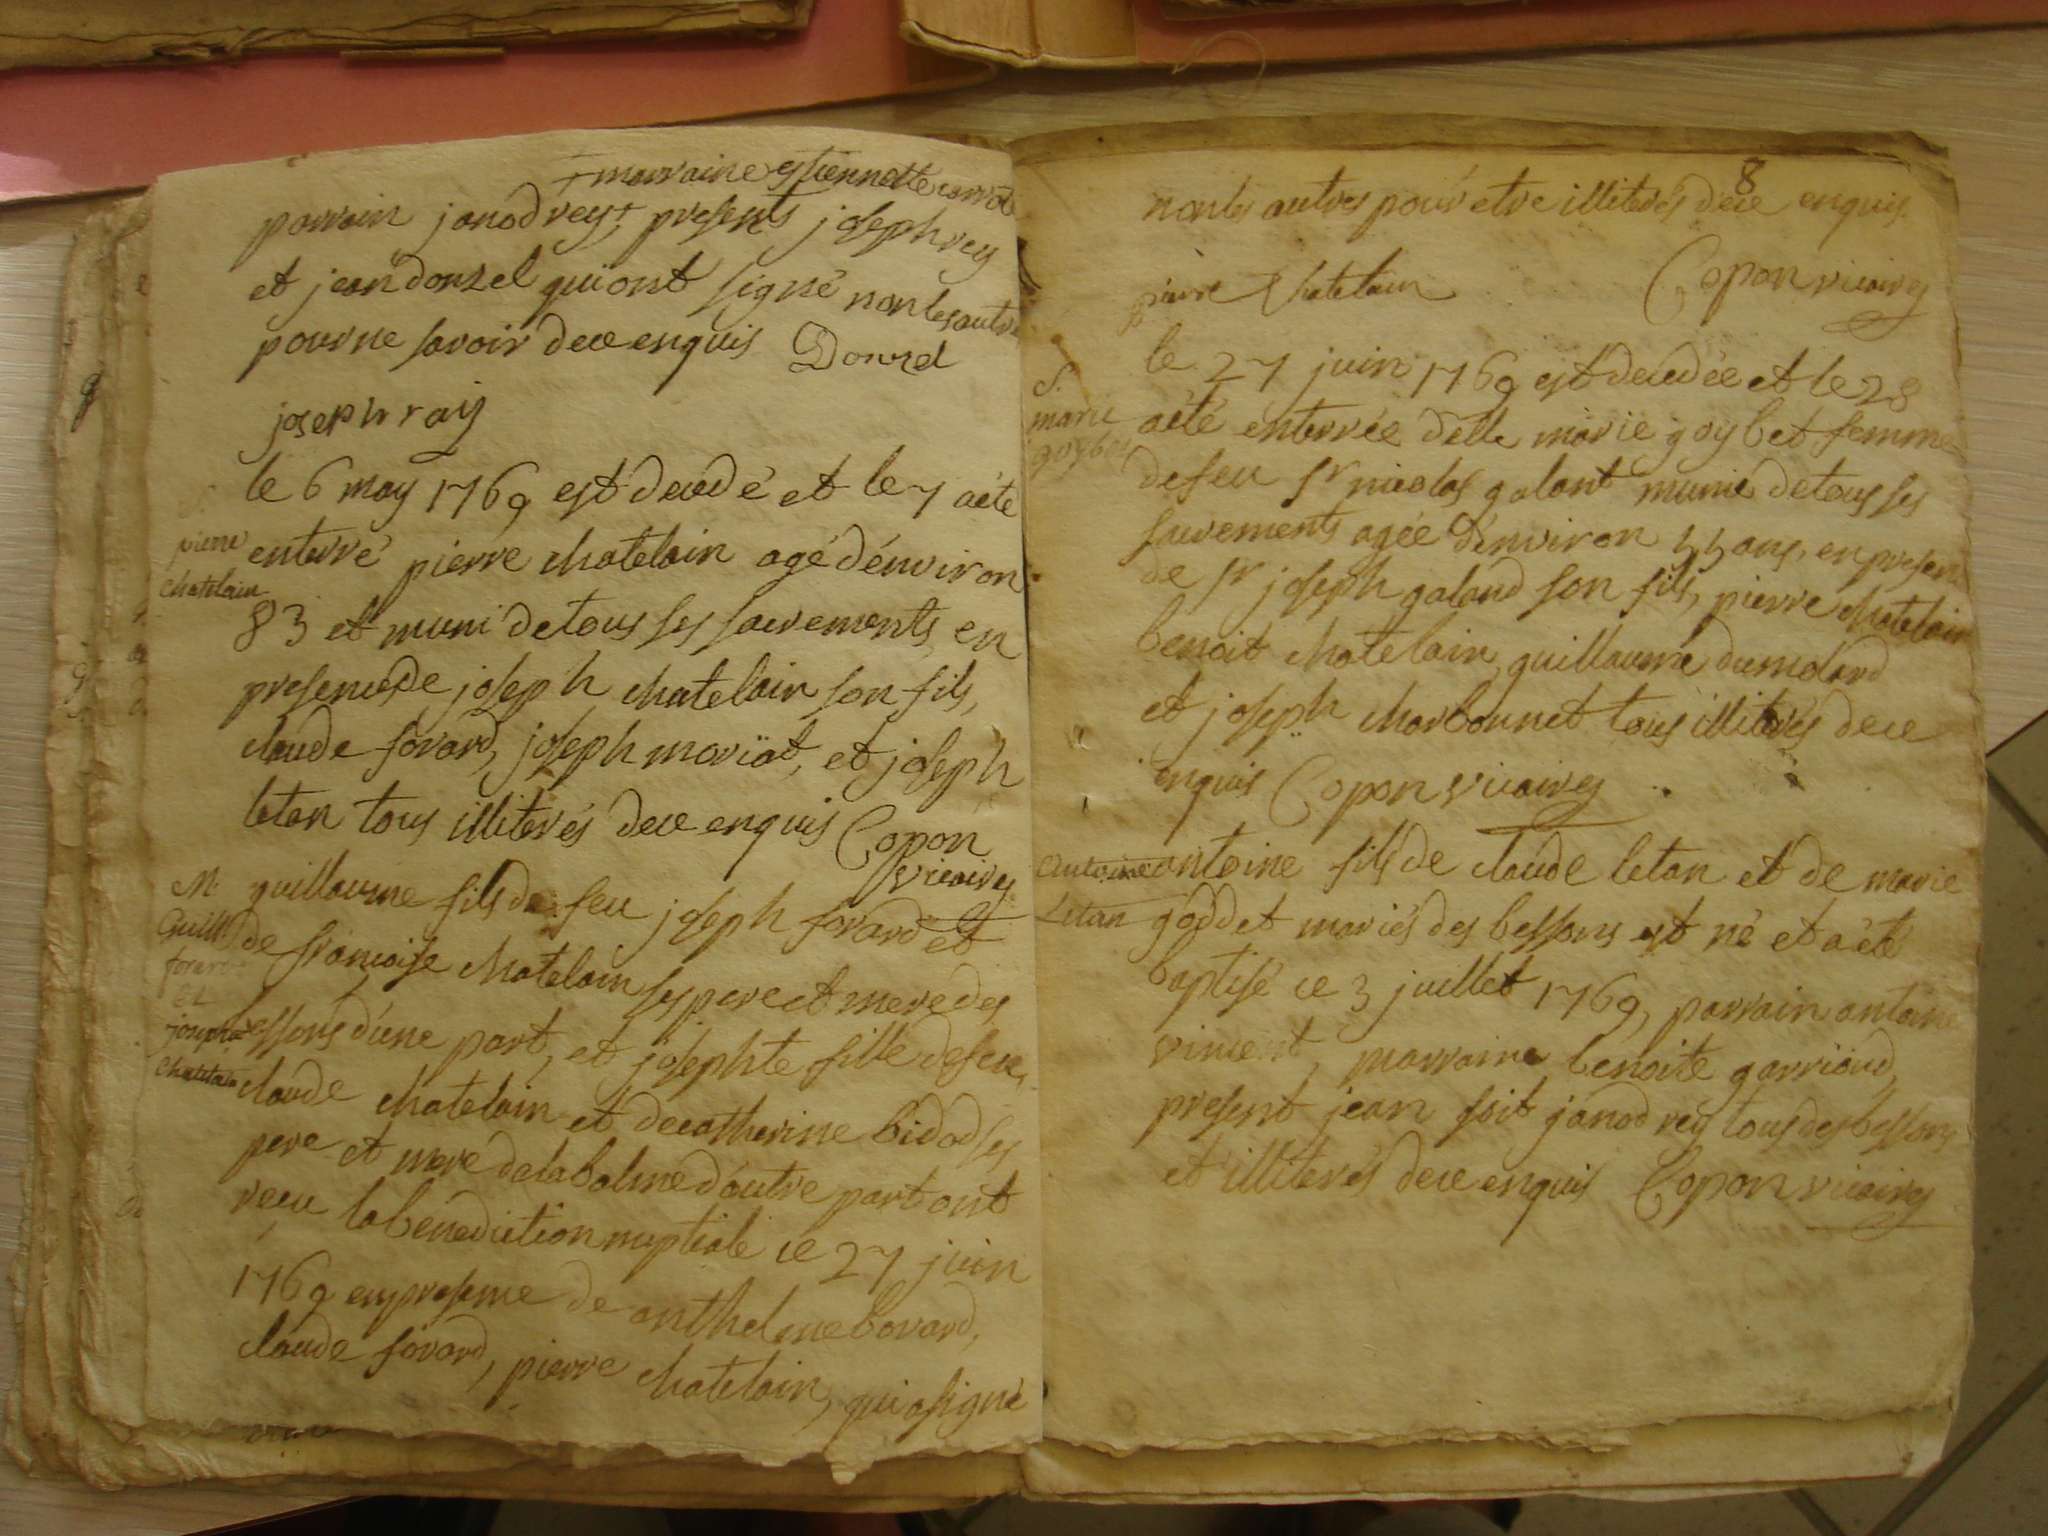 + marraine estiennette carrod
parrain janod rey + presents joseph rey
et jean donzel qui ont signé non les autres
pour ne savoir de ce enquis Donzel
joseph ray
S.
pierre
chatelain
le 6 may 1769 est decedé et le 7 a été
enterré pierre chatelain agé d'environ
83 et muni de tous ses sacrements, en
presence de joseph chatelain son fils,
claude forard, joseph moriat, et joseph
letan tous illiterés de ce enquis Copon
vicaire
M.
Guill.
forard
et
josephte
chatelain
guillaume fils de feu joseph forard et
de françoise chatelain ses pere et mere des
bessons d'une part, et josephte fille de feu
claude chatelain et de catherine bidod ses
pere et mere de la balme d'autre part ont
recu la bénédiction nuptiale ce 27 juin
1769 en presence de anthelme bovard,
claude forard, pierre chatelain, qui a signé
8
non les autres pour etre illiterés de ce enquis.
pierre Chatelain Copon vicaire
S.
marie
goybet
le 27 juin 1769 est decedée et le 28
a été enterrée delle marie goybet femme
de feu sr nicolas galant munie de tous ses
sacrements agée d'environ 55 ans, en presence
de sr joseph galand son fils, pierre chatelain
benoit chatelain, guillaume dumolard
et joseph charbonnet tous illiterés de ce
enquis Copon vicaire
Antoine
Letan
antoine fils de claude letan et de marie
goddet mariés des bessons est né et a été
baptisé ce 3 juillet 1769, parrain antoine
vincent, marraine benoite garrioud,
present jean soit janod rey tous des bessons
et illiterés de ce enquis Copon vicaire